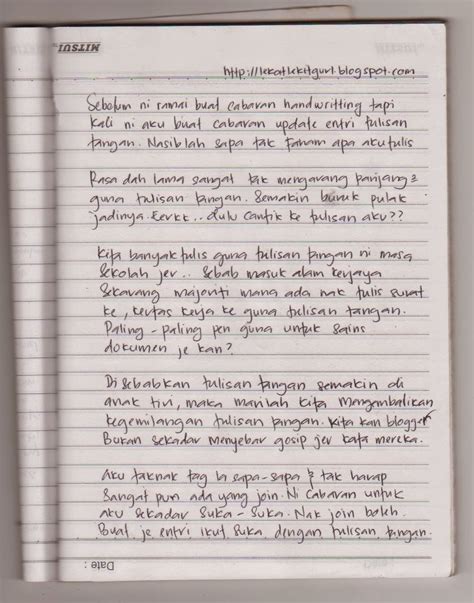 MITSUI
http://lekatlekitgurl.blogspot.com
Sebelum ni ramai buat cabaran handwritting tapi
kali ni aku buat cabaran update entri tulisan
tangan. Nasiblah sapa tak faham apa aku tulis
Rasa dah lama sangat tak mengarang panjang2
guna tulisan tangan. Semakin buruk pulak
jadinya. Eerkk.. dulu cantik ke tulisan aku??
Kita banyak tulis guna tulisan tangan ni masa
sekolah jer.. Sebab masuk alam kerjaya
sekarang majoriti mana ada nak tulis surat
ke, kertas kerja ke guna tulisan tangan.
Paling-paling pen guna untuk sains
dokumen je kan?
Disebabkan tulisan tangan semakin di
anak tiri, maka marilah kita mengembalikan
kegemilangan tulisan tangan. Kita kan blogger
Bukan sekadar menyebar gosip jer kata mereka.
Aku taknak tag la sapa-sapa & tak harap
sangat pun ada yang join. Ni cabaran untuk
aku sekadar suka-suka. Nak join boleh.
Buat je entri ikut suka dengan tulisan tangan.
Date :